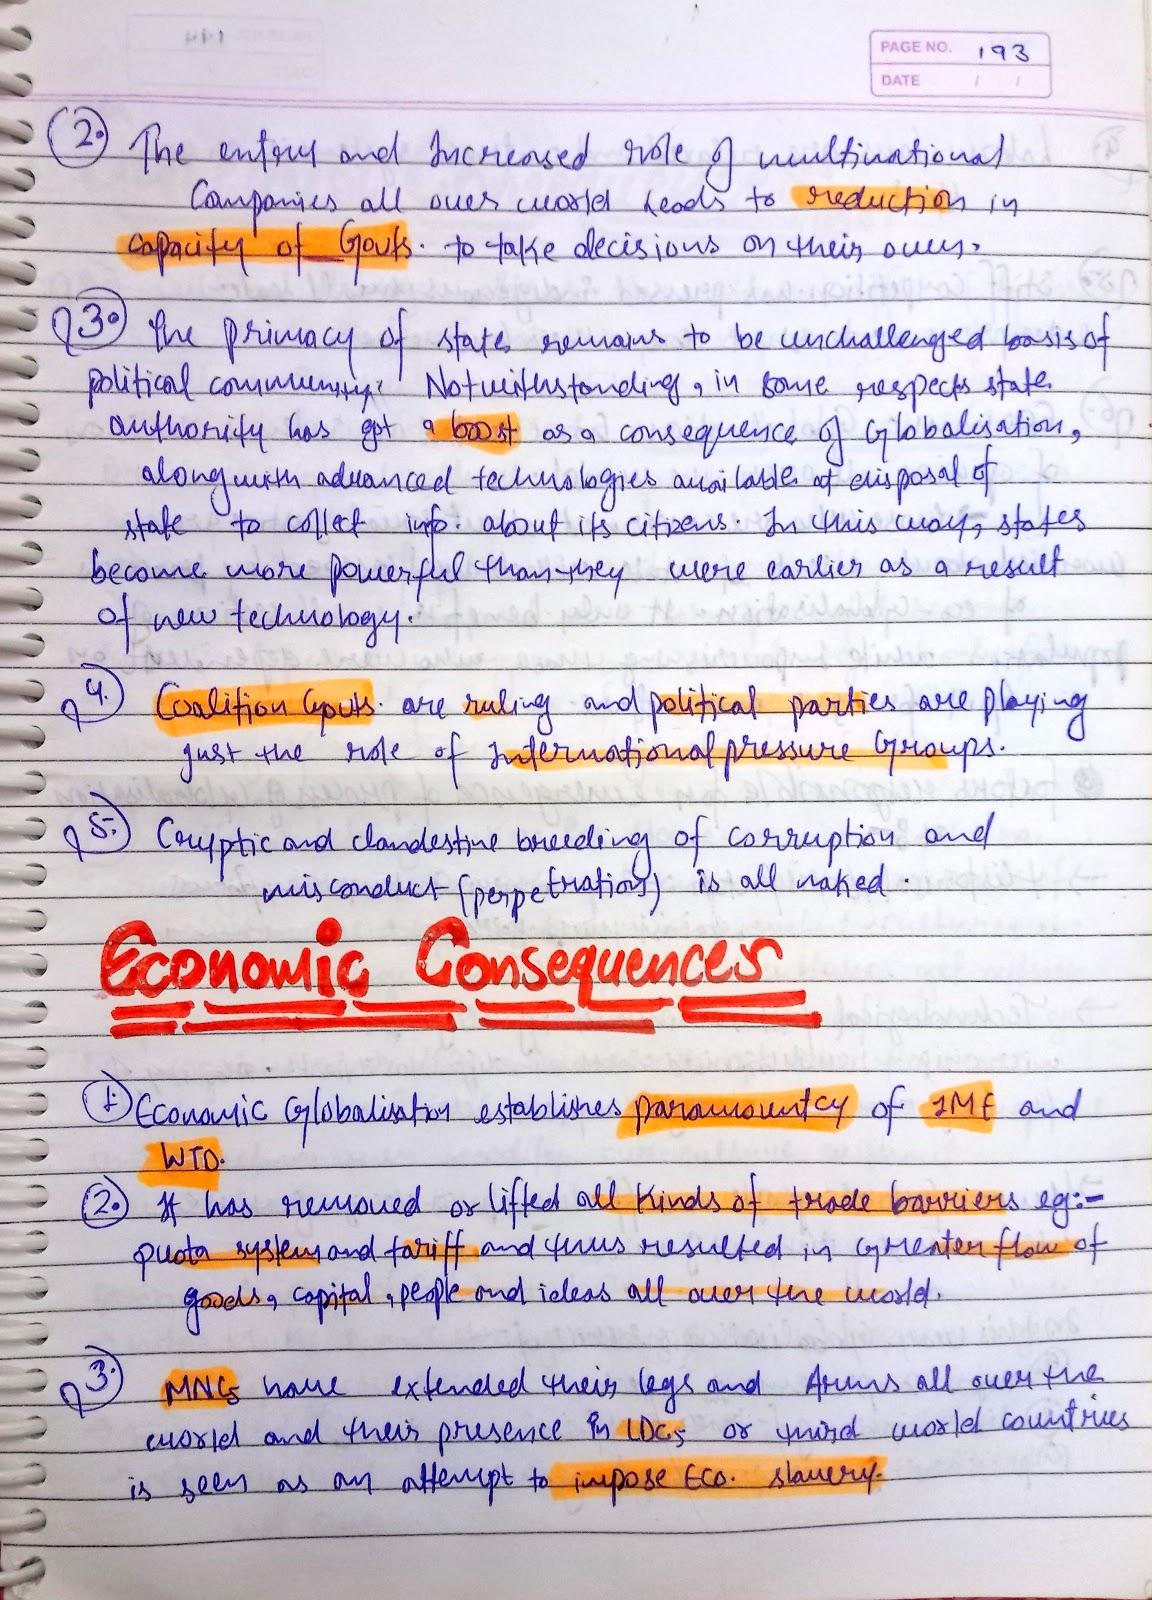 PAGE NO. 193
DATE / /
2. The entry and Increased role of multinational
Companies all over world leads to reduction in
capacity of Govts. to take decisions on their own.
3. The primacy of state remains to be unchallenged basis of
political community. Notwithstanding, in some respects state
authority has got a boost as a consequence of Globalisation,
along with advanced technologies available at disposal of
state to collect info. about its citizens. In this way, states
become more powerful than they were earlier as a result
of new technology.
4. Coalition Govts. are ruling and political parties are playing
just the role of International pressure Groups.
5. Cryptic and clandestine breeding of corruption and
misconduct (perpetration) is all naked.
Economic Consequences
1. Economic Globalisation establishes paramountcy of IMF and
WTO.
2. It has removed or lifted all kinds of trade barriers eg:-
quota system and tariff and thus resulted in Greater flow of
goods, capital, people and ideas all over the world.
3. MNCs have extended their legs and Arms all over the
world and their presence in LDCs or third world countries
is seen as an attempt to impose Eco. slavery.